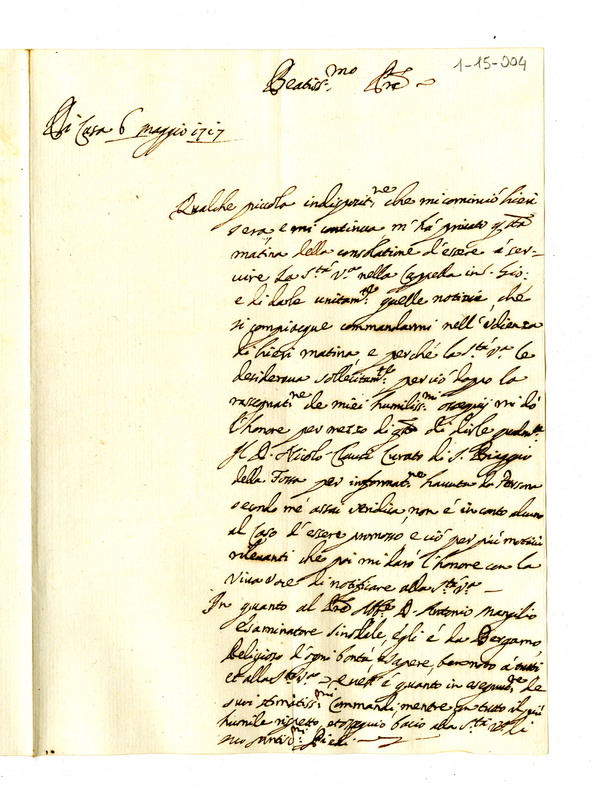 1-15-004
Beatiss.mo Pre
Di Casa 6 maggio 1717
Qualche piccola indispositne che mi cominciò hieri
sera e mi continua m'hà privato qsta
matina della consolatine d'essere á ser-
uire La Stà Va nella Cappella in S. Gio:
e di darle unitamte quelle notizie, che
si compiacque commandarmi nell'Udienza
di hieri matina e perché la Stà Va le
desideraua sollecitamte perciò doppo la
rassegnatne de miei humilissmi ossequij mi dò
l'honore per mezzo di qsta di dirle qualmte
Il D. Nicolo Clausi Curato di S. Biaggio
della Fossa per informatne hauuta da Persona
secondo mé assai veridica, non é in conto alcuno
al Caso d'essere promosso, e ciò per più motivi
rileuanti che poi mi darò l'honore con la
Viva voce di notificare alla Stà Va
In quanto al Pre D. Antonio
esaminatore Sinodale, egli é da Bergamo
Religioso d'ogni bontà, e sapere, ben noto á tutti
et alla Stà Va e questo é quanto in esecune de
suoi stimatissmi Commandi, mentre con tutto il più
humile rispetto, et ossequio bacio alla Stà Va li
suoi santissmi Piedi